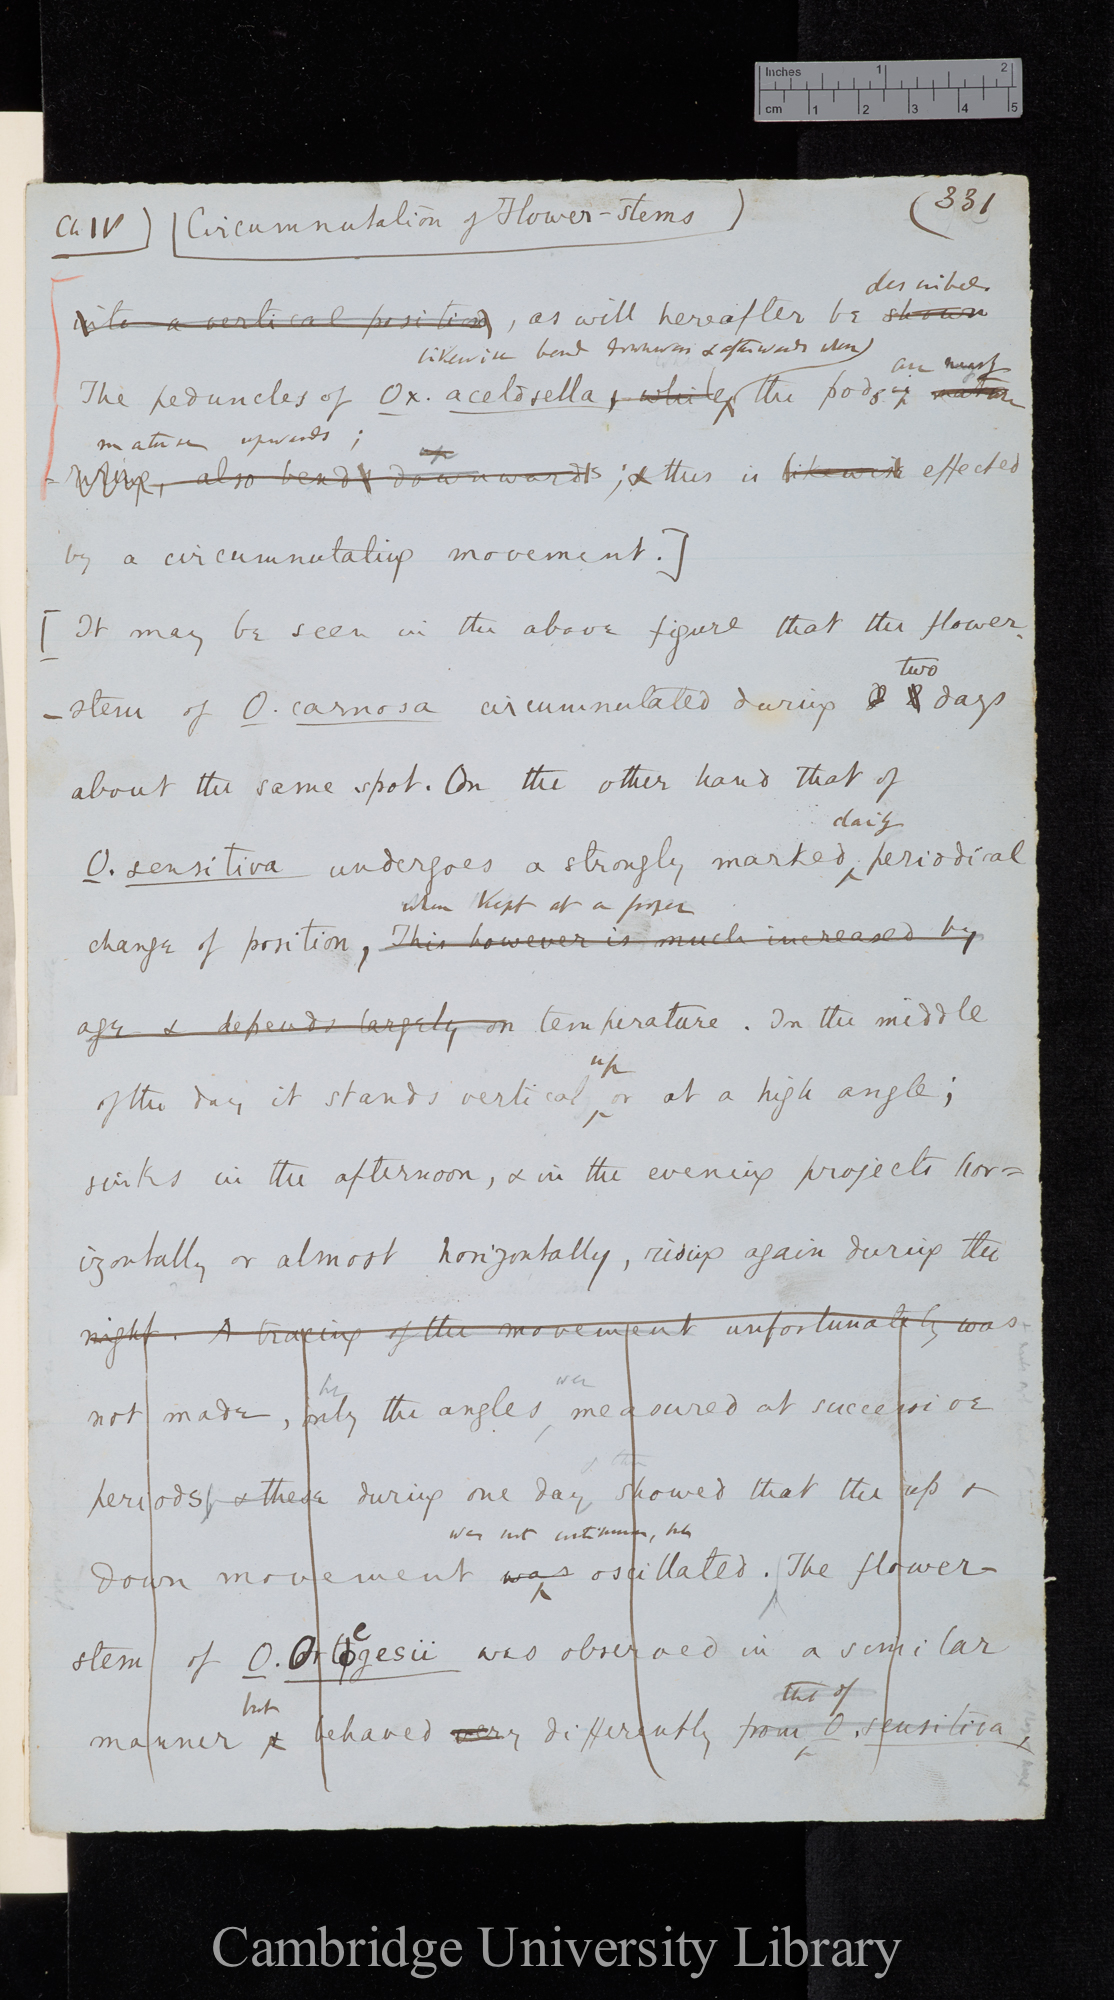 Inches 1 2
cm 1 2 3 4 5
Ch IV) [Circumnutation of Flower-stems) (331
described
into a vertical position, as will hereafter be shown
likewise bend downwards & afterwards when
are nearly
The peduncles of Ox. acetosella, while, the pods mature
mature upwards;
up
also bend downwards; & this is likewise effected
by a circumnutating movement.]
[It may be seen in the above figure that the flower-
two
stem of O. carnosa circumnutated during days
about the same spot. On the other hand that of
daily
O. sensitiva undergoes a strongly marked periodical
when kept at a proper
change of position, This however is much increased by
age & depends largely on temperature. In the middle
up
of the day it stands vertical or at a high angle;
sinks in the afternoon, & in the evening projects hor=
izontally or almost horizontally, rising again during the
night. A tracing of the movement unfortunately was
were
not made, only the angles measured at successive
periods, & these during one day showed that the up &
was not continuous, but
down movement was oscillated. The flower-
stem of O. Ortegesii was observed in a similar
but
that of
manner & behaved very differently from O. sensitiva,
Cambridge University Library